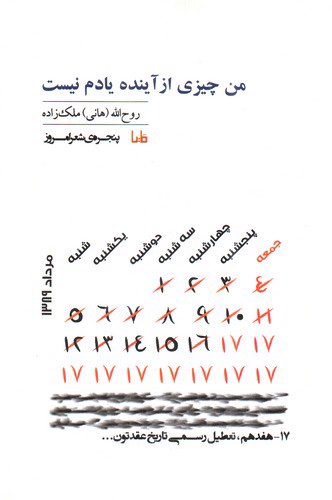 من چیزی از آینده یادم نیست
روح‌الله (هانی) ملک‌زاده
پنجره‌ی شعر امروز
جمعه پنجشنبه چهارشنبه سه شنبه دوشنبه یکشنبه شنبه
مرداد ۱۳۸۹
۴ ۳ ۲ ۱
۱۱ ۱۰ ۹ ۸ ۷ ۶ ۵
۱۷ ۱۷ ۱۶ ۱۵ ۱۴ ۱۳ ۱۲
۱۷ ۱۷ ۱۷ ۱۷ ۱۷ ۱۷ ۱۷
۱۷- هفدهم، تعطیل رسمی تاریخ عقدتون...